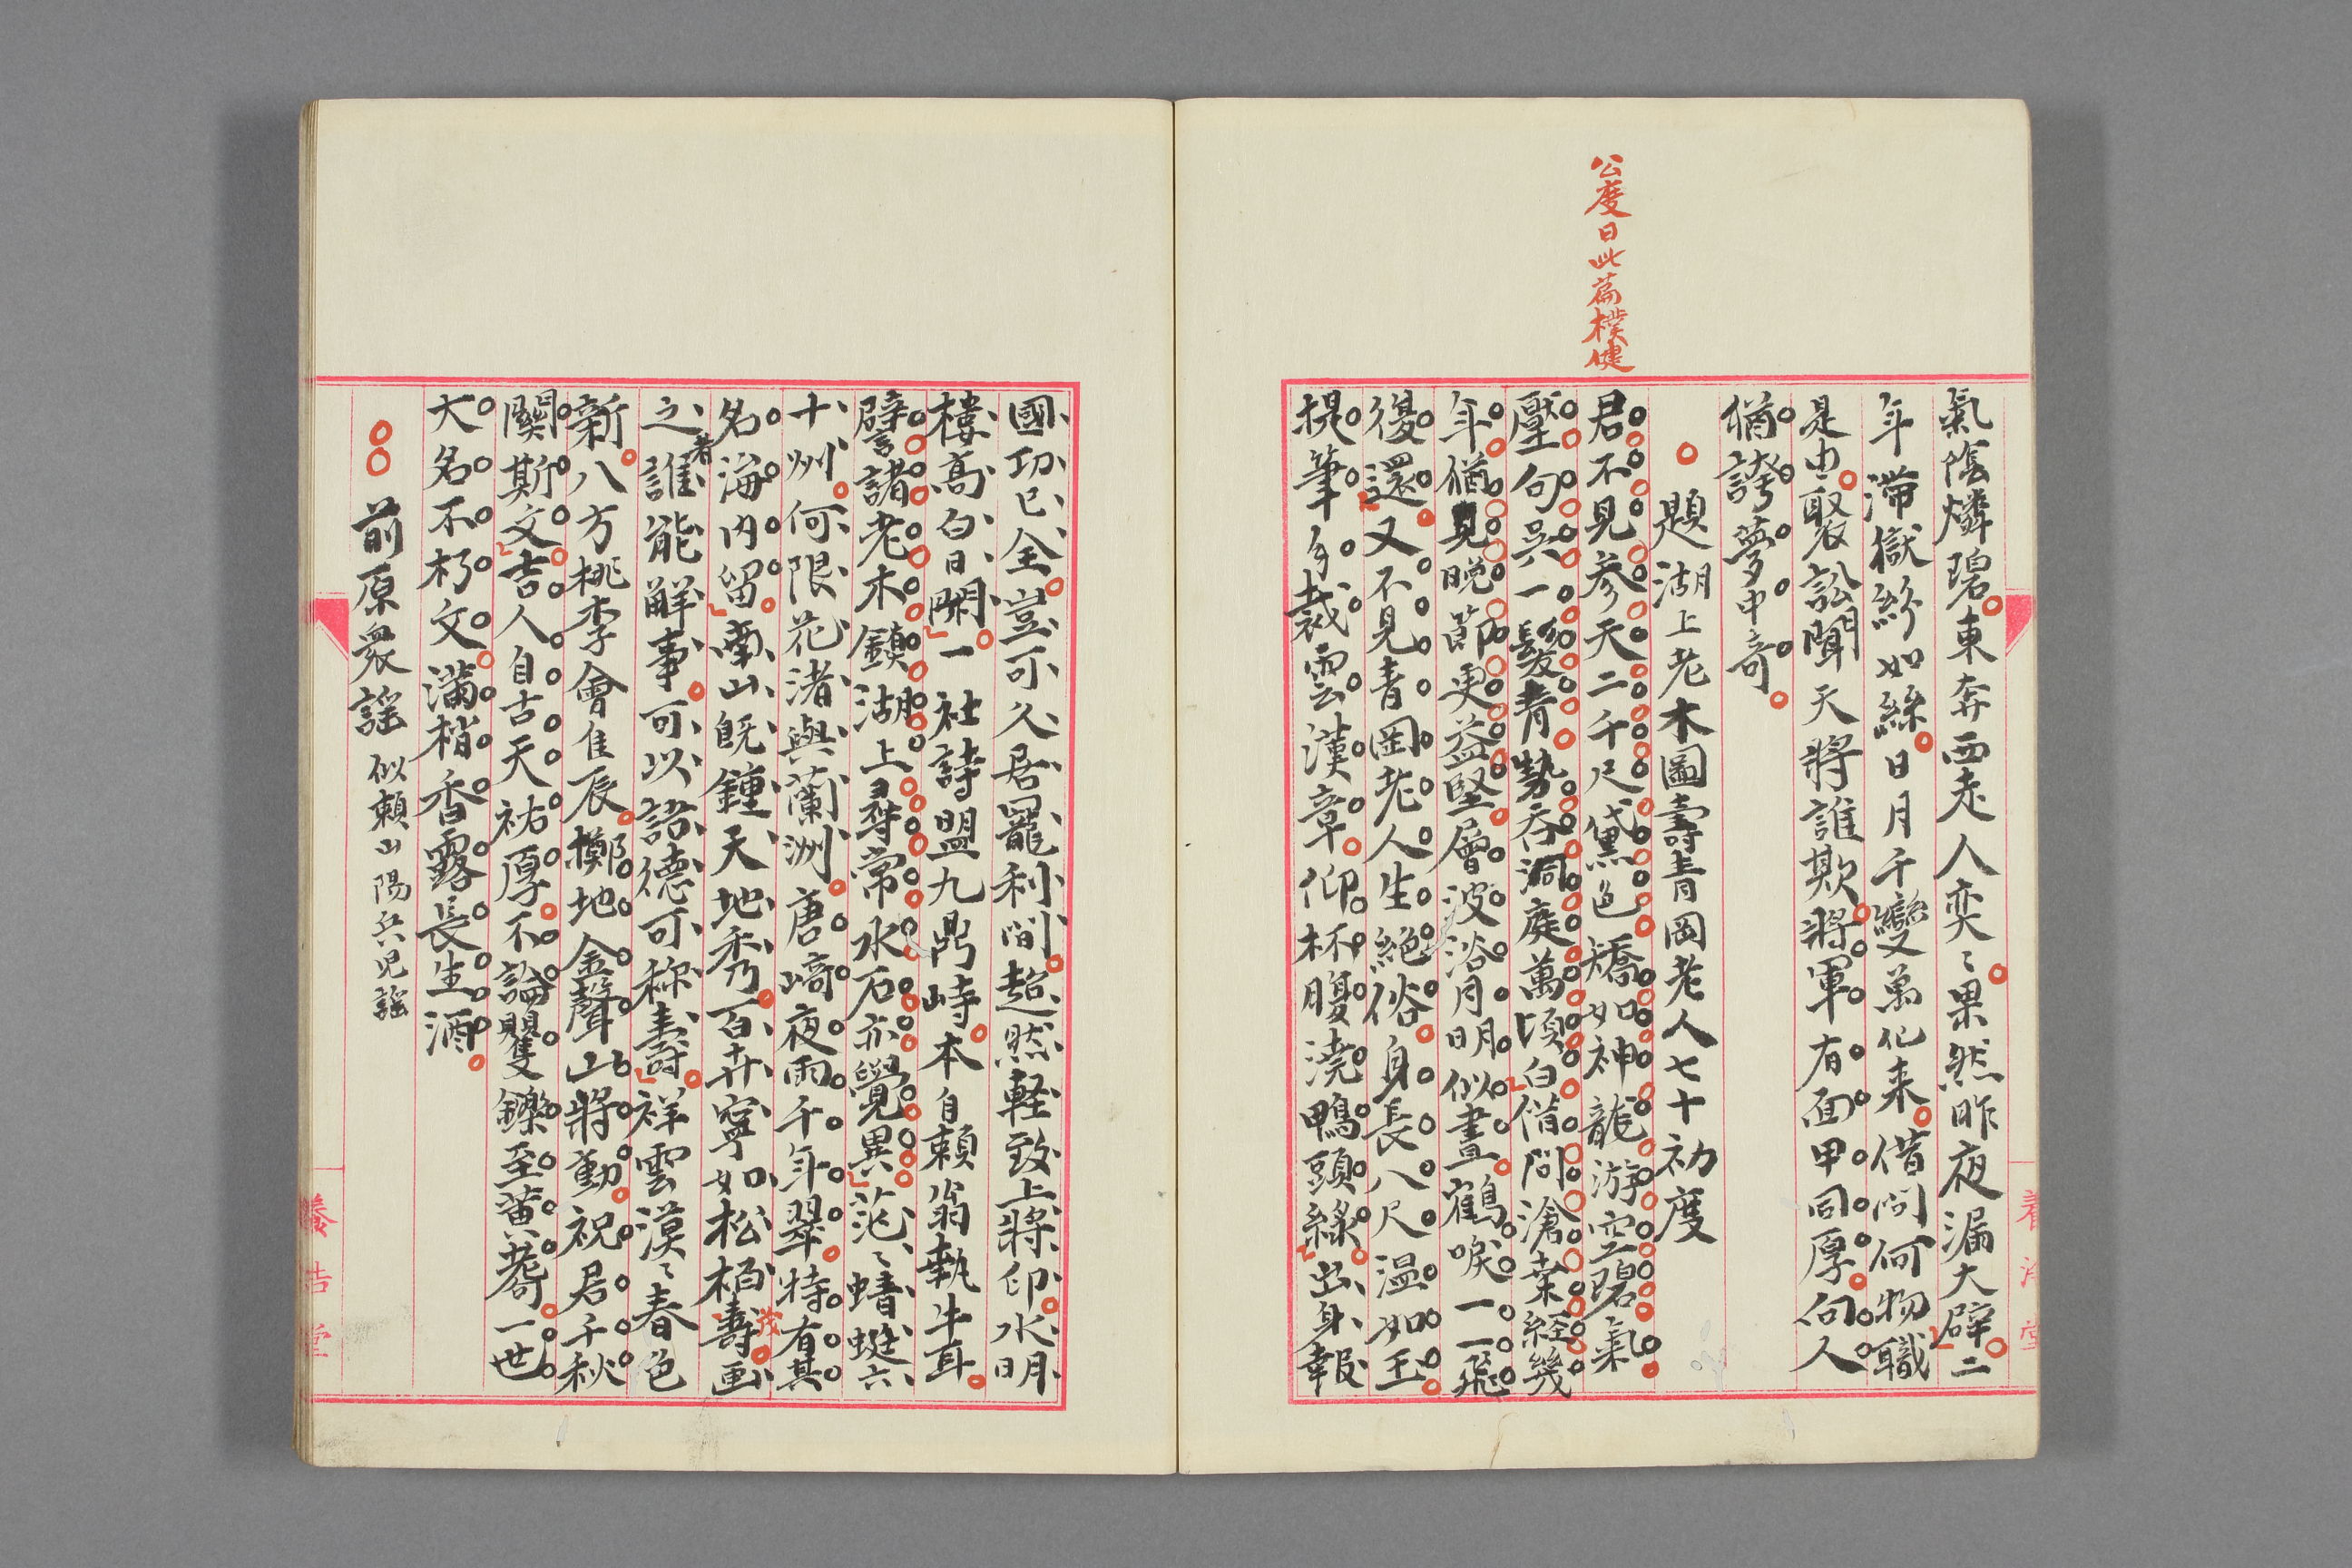 公度曰此篇樸健
氣陰燐碧東奔西走人奕〻果然昨夜漏大辟二
年滯獄紛如絲日月千變萬化来借問何物職
是由聚訟聞天將誰欺將軍有面甲同厚向人
猶誇夢中奇
題湖上老木圖壽青岡老人七十初度
君不見参天二千尺黛色矯如神龍游空碧氣
壓句吳一髮青勢呑洞庭萬頃白借問滄桒経幾
年猶見晩節更益堅層波浴月明似晝鶴唳一一飛
復還又不見青岡老人生絶俗身長八尺温如玉
提筆自裁雲漢章仰杯腹澆鴨頭緑出身報
國功已全豈可久居寵利間超然軽致上將印水明
樓高白日閑一社詩盟九鼎峙本自頼翁執牛耳
譬諸老木鎮湖上尋常水石亦覺異茫〻蜻蜓六
十州何限花渚與蘭洲唐﨑夜雨千年翠特有其
名海内留南山既鍾天地秀百卉寧如松栢壽画
茂
之者誰能解事可以語德可称壽祥雲漠〻春色
新八方桃李會佳辰擲地金聲此將勤祝君千秋
關斯文吉人自古天祐厚不論矍鑠至黄耈一世
大名不朽文滿梢香露長生酒
前原衆謡 似頼山陽兵児謡
養浩堂
養浩堂